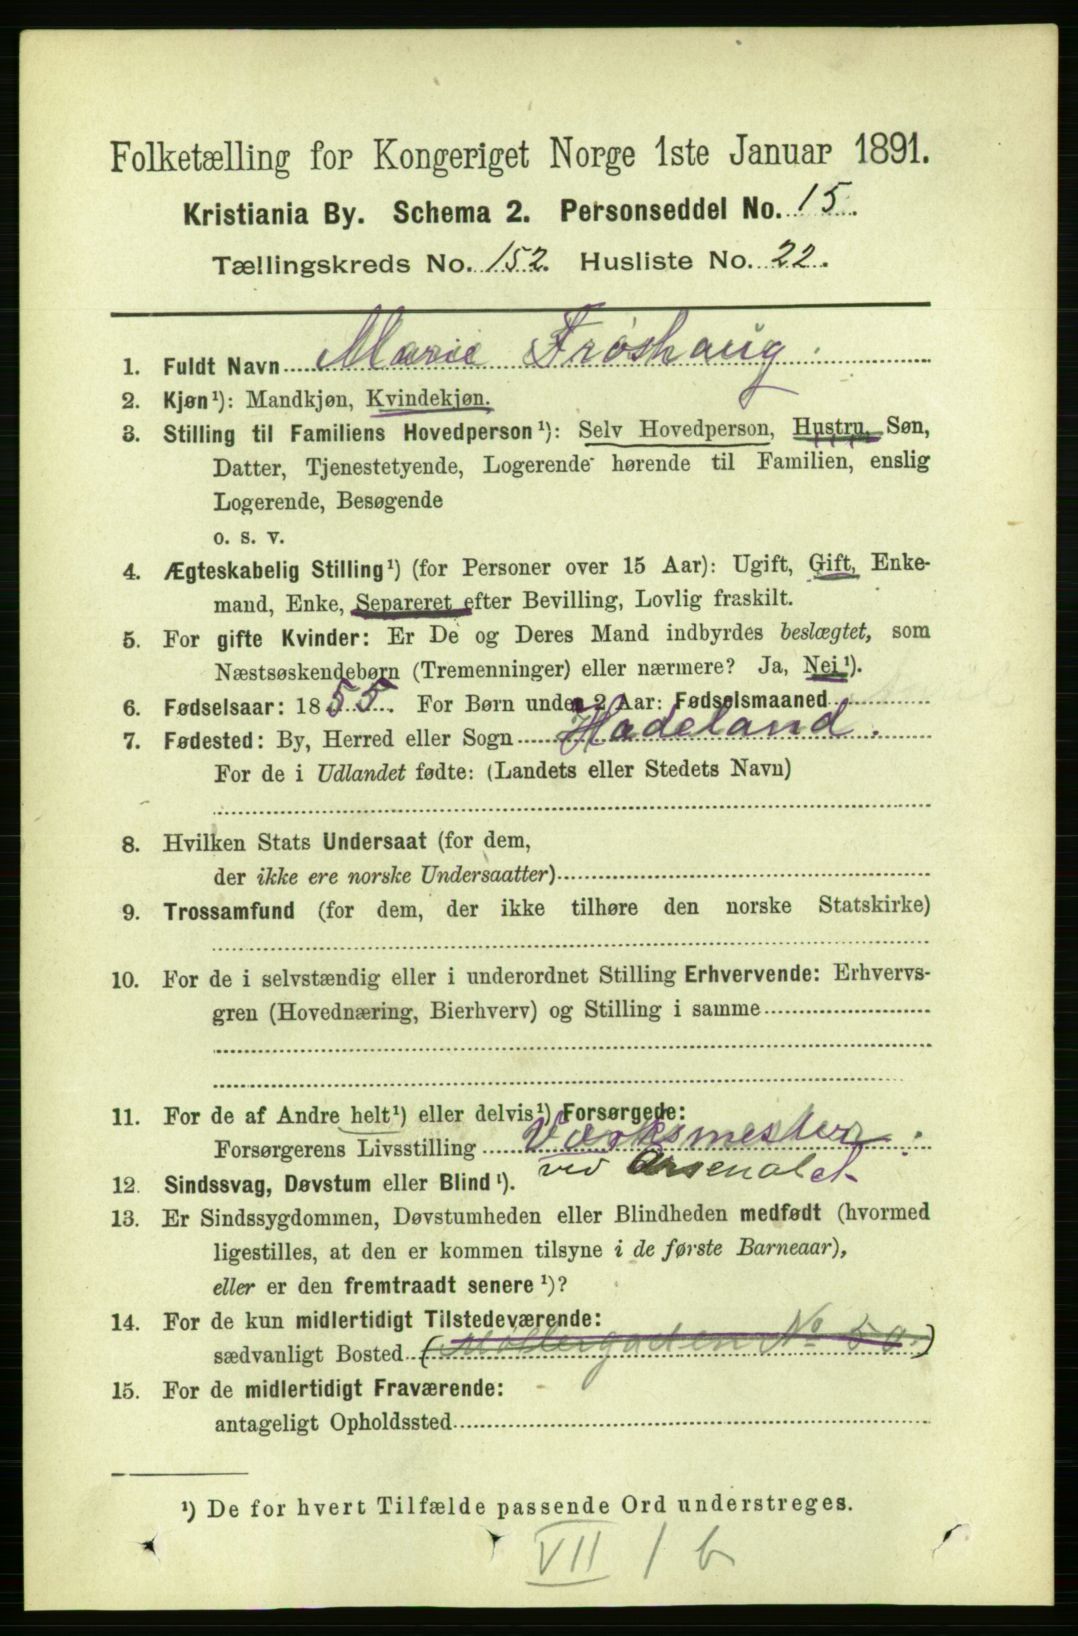 Folketælling for Kongeriget Norge 1ste Januar 1891.
Kristiania By. Schema 2. Personseddel No. 15.
Tællingskreds No. 152. Husliste No. 22.
1. Fuldt Navn Marie Frøshaug.
2. Kjøn¹): Mandkjøn, Kvindekjøn.
3. Stilling til Familiens Hovedperson¹): Selv Hovedperson, Hustru, Søn,
Datter, Tjenestetyende, Logerende hørende til Familien, enslig
Logerende, Besøgende
o. s. v.
4. Ægteskabelig Stilling¹) (for Personer over 15 Aar): Ugift, Gift, Enke-
mand, Enke, Separeret efter Bevilling, Lovlig fraskilt.
5. For gifte Kvinder: Er De og Deres Mand indbyrdes beslægtet, som
Næstsøskendebørn (Tremenninger) eller nærmere? Ja, Nei¹).
6. Fødselsaar: 1855. For Børn under 2 Aar: Fødselsmaaned
7. Fødested: By, Herred eller Sogn Hadeland.
For de i Udlandet fødte: (Landets eller Stedets Navn)
8. Hvilken Stats Undersaat (for dem,
der ikke ere norske Undersaatter)
9. Trossamfund (for dem, der ikke tilhøre den norske Statskirke)
10. For de i selvstændig eller i underordnet Stilling Erhvervende: Erhvervs-
gren (Hovednæring, Bierhverv) og Stilling i samme
11. For de af Andre helt¹) eller delvis¹) Forsørgede:
Forsørgerens Livsstilling Værksmester.
ved Arsenalet
12. Sindssvag, Døvstum eller Blind¹).
13. Er Sindssygdommen, Døvstumheden eller Blindheden medfødt (hvormed
ligestilles, at den er kommen tilsyne i de første Barneaar),
eller er den fremtraadt senere¹)?
14. For de kun midlertidigt Tilstedeværende:
sædvanligt Bosted (Møllergaden No 50.)
15. For de midlertidigt Fraværende:
antageligt Opholdssted
¹) De for hvert Tilfælde passende Ord understreges.
VII 1 b